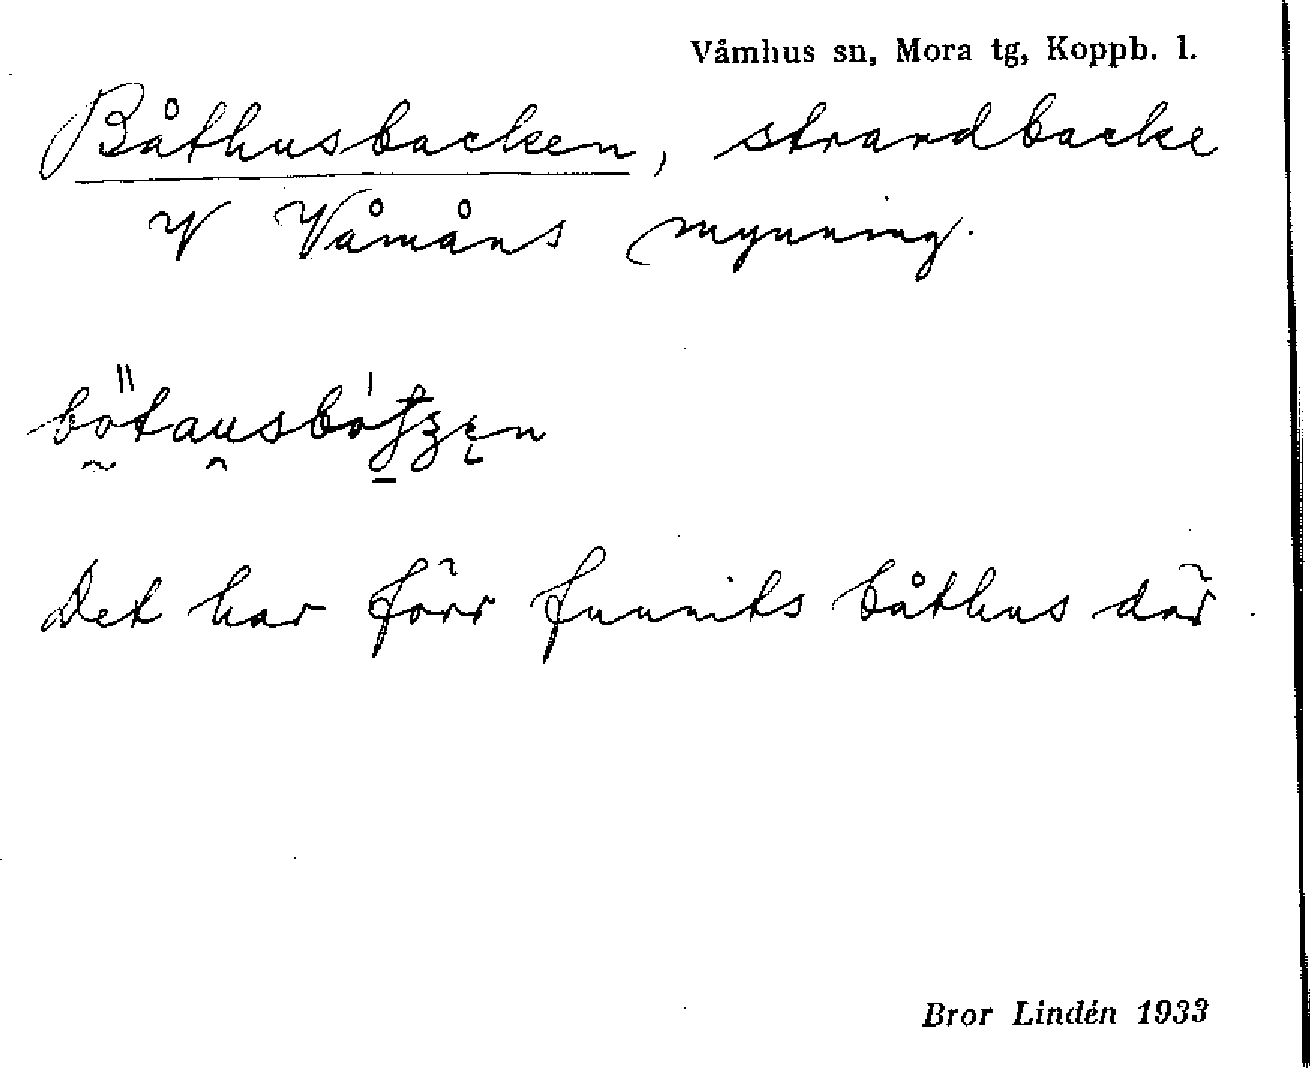 Våmhus sn, Mora tg, Koppb. l.
Båthusbacken, strandbacke
V Våmåns mynning.
Det har förr funnits båthus där.
Bror Lindén 1933